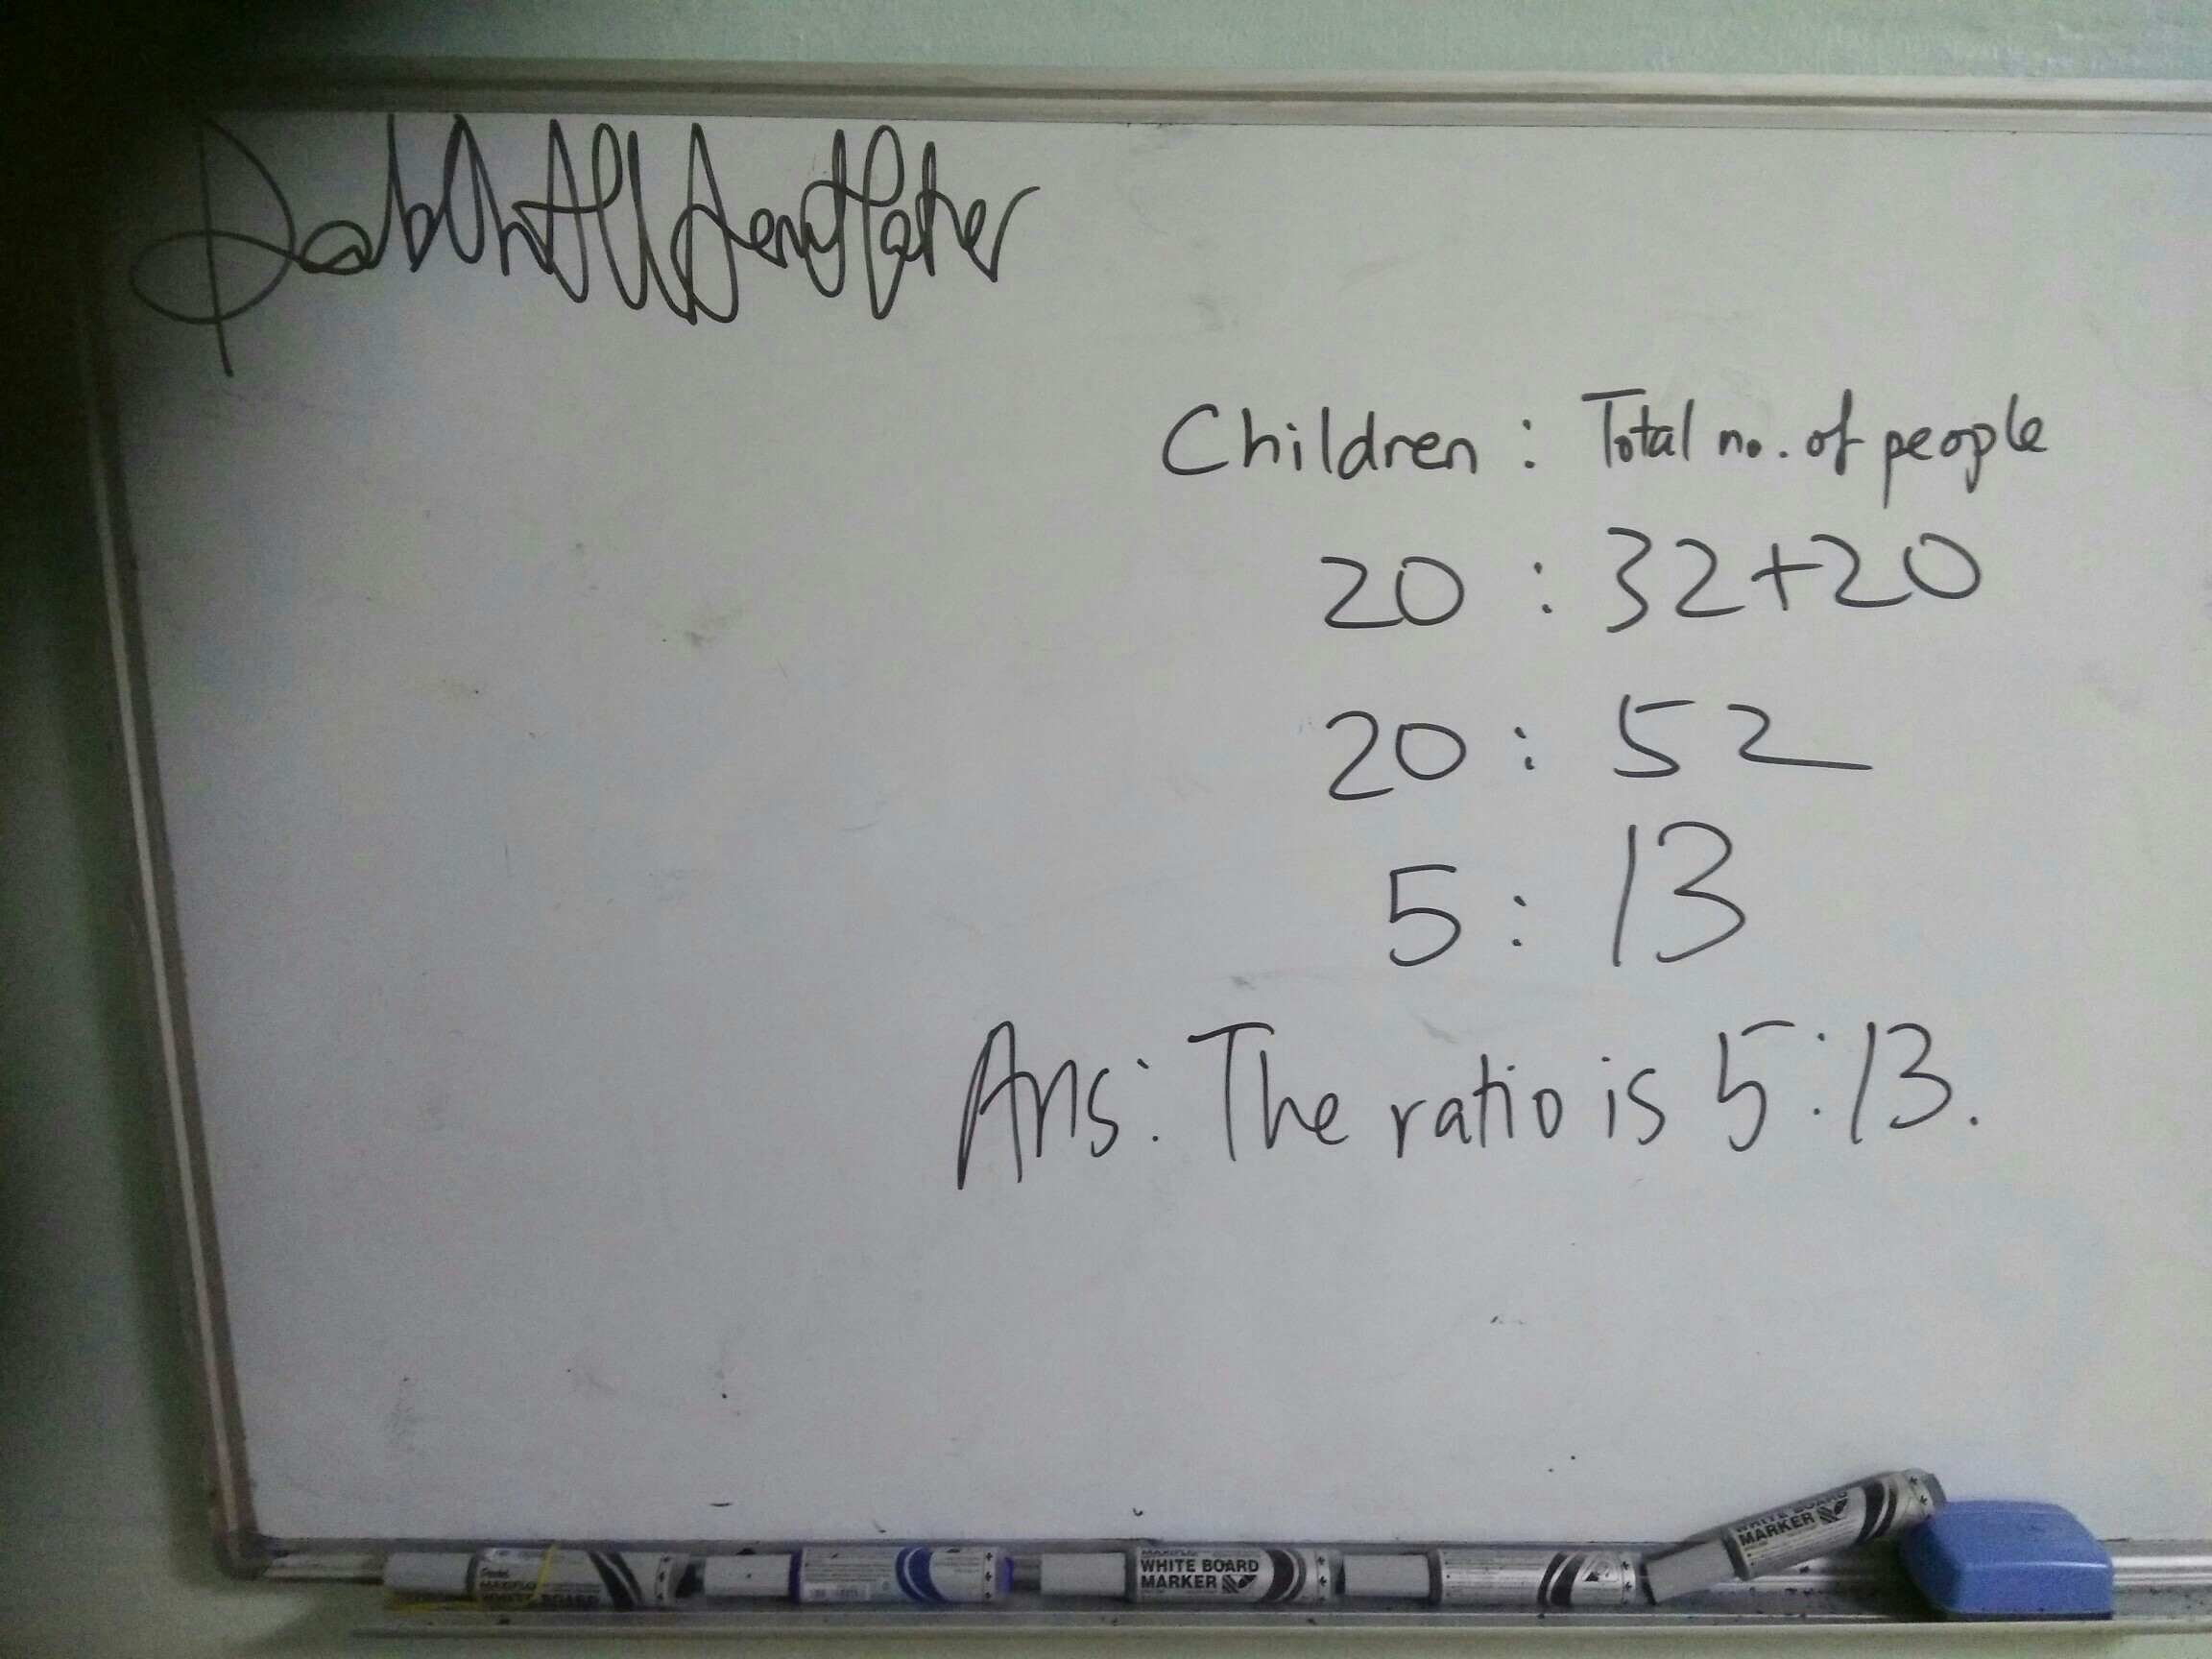 Children : Total no. of people
20 : 32+20
20 : 52
5 : 13
Ans: The ratio is 5:13.
WHITE BOARD
MARKER
WHITE BOARD
MARKER